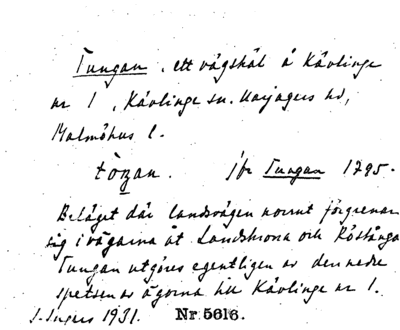 Tungan, ett vägskäl å Kävlinge
nr 1, Kävlinge sn. Harjagers hd,
Malmöhus l.
tåŋan. jfr Tungan 1795.
Beläget där landsvägen norrut förgrenar
sig i vägarna åt Landskrona och Röstånga
Tungan utgöres egentligen av den nedre
spetsen av ägorna till Kävlinge nr 1.
J. Ingers 1931. Nr 5616.